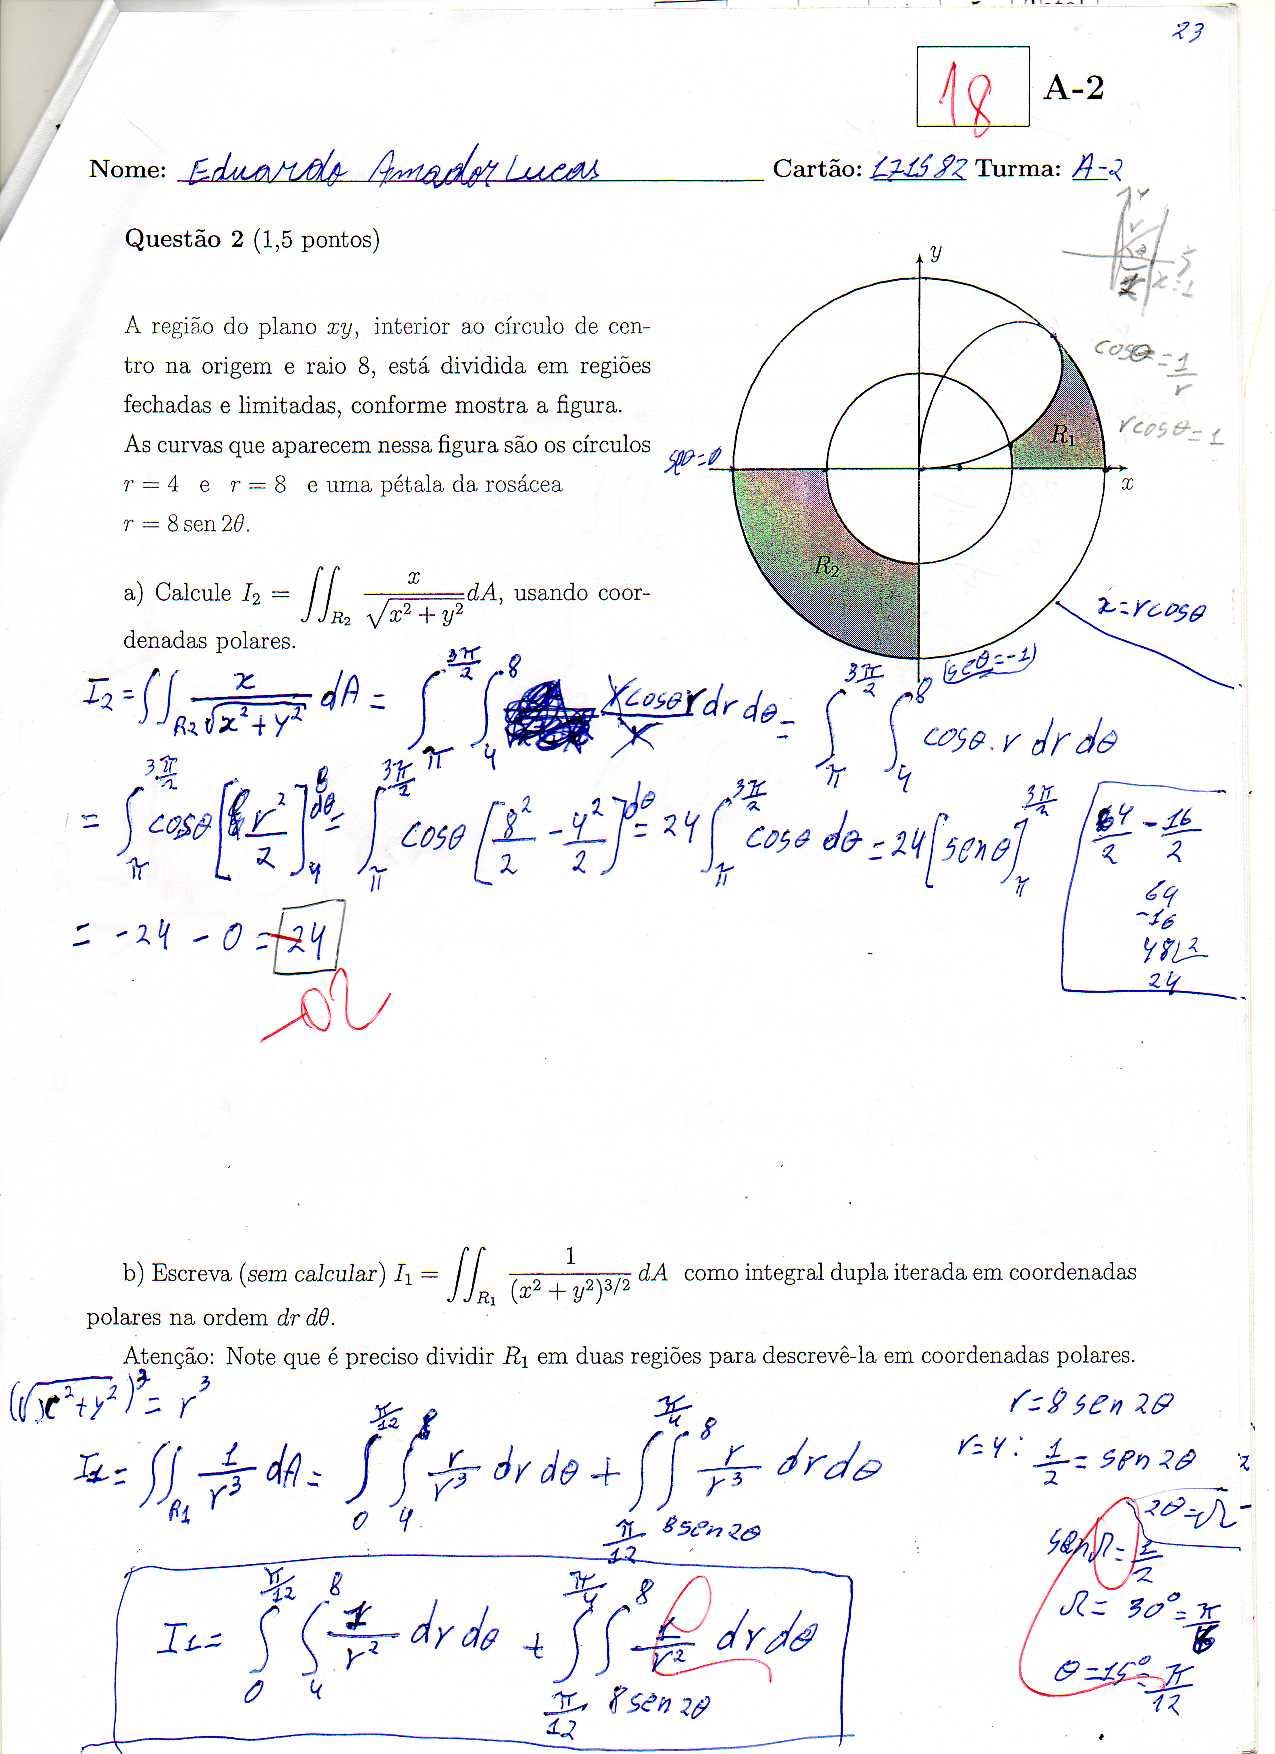 23
18 A-2
Nome: Eduardo Amador Lucas Cartão: 171582 Turma: A-2
Questão 2 (1,5 pontos)
y
x=1
cosθ = 1/r
rcosθ = 1
A região do plano xy, interior ao círculo de cen-
tro na origem e raio 8, está dividida em regiões
fechadas e limitadas, conforme mostra a figura.
As curvas que aparecem nessa figura são os círculos
r = 4 e r = 8 e uma pétala da rosácea
r = 8 sen 2θ.
R₁
x
R₂
a) Calcule I₂ = ∬_R₂ x/√(x² + y²) dA, usando coor-
denadas polares.
x = rcosθ
(senθ=-1)
I₂ = ∬_R₂ x/√(x² + y²) dA = ∫_π^{3π/2} ∫_4^8 rcosθ r/r dr dθ = ∫_π^{3π/2} ∫_4^8 cosθ . r dr dθ
= ∫_π^{3π/2} cosθ [r²/2]_4^8 dθ = ∫_π^{3π/2} cosθ [8²/2 - 4²/2] dθ = 24 ∫_π^{3π/2} cosθ dθ = 24 [senθ]_π^{3π/2}
64/2 - 16/2
64
-16
48 2
24
= -24 - 0 = -24
b) Escreva (sem calcular) I₁ = ∬_R₁ 1/(x² + y²)^{3/2} dA como integral dupla iterada em coordenadas
polares na ordem dr dθ.
Atenção: Note que é preciso dividir R₁ em duas regiões para descrevê-la em coordenadas polares.
(√(x² + y²))³ = r³
r = 8 sen 2θ
I₁ = ∬_R₁ 1/r³ dA = ∫_0^{π/12} ∫_4^8 r/r³ dr dθ + ∫_{π/12}^{π/4} ∫_{8sen2θ}^8 r/r³ dr dθ
r = 4 : 1/2 = sen 2θ
2θ = Ω
sen Ω = 1/2
Ω = 30° = π/6
θ = 15° = π/12
I₁ = ∫_0^{π/12} ∫_4^8 1/r² dr dθ + ∫_{π/12}^{π/4} ∫_{8sen2θ}^8 1/r² dr dθ